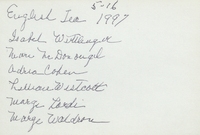 5-16
English Tea 1997
Isabel Wittanger
Mimi McDonough
Adria Cohen
Lillian Westcott
Marge Lords
Marge Waldron